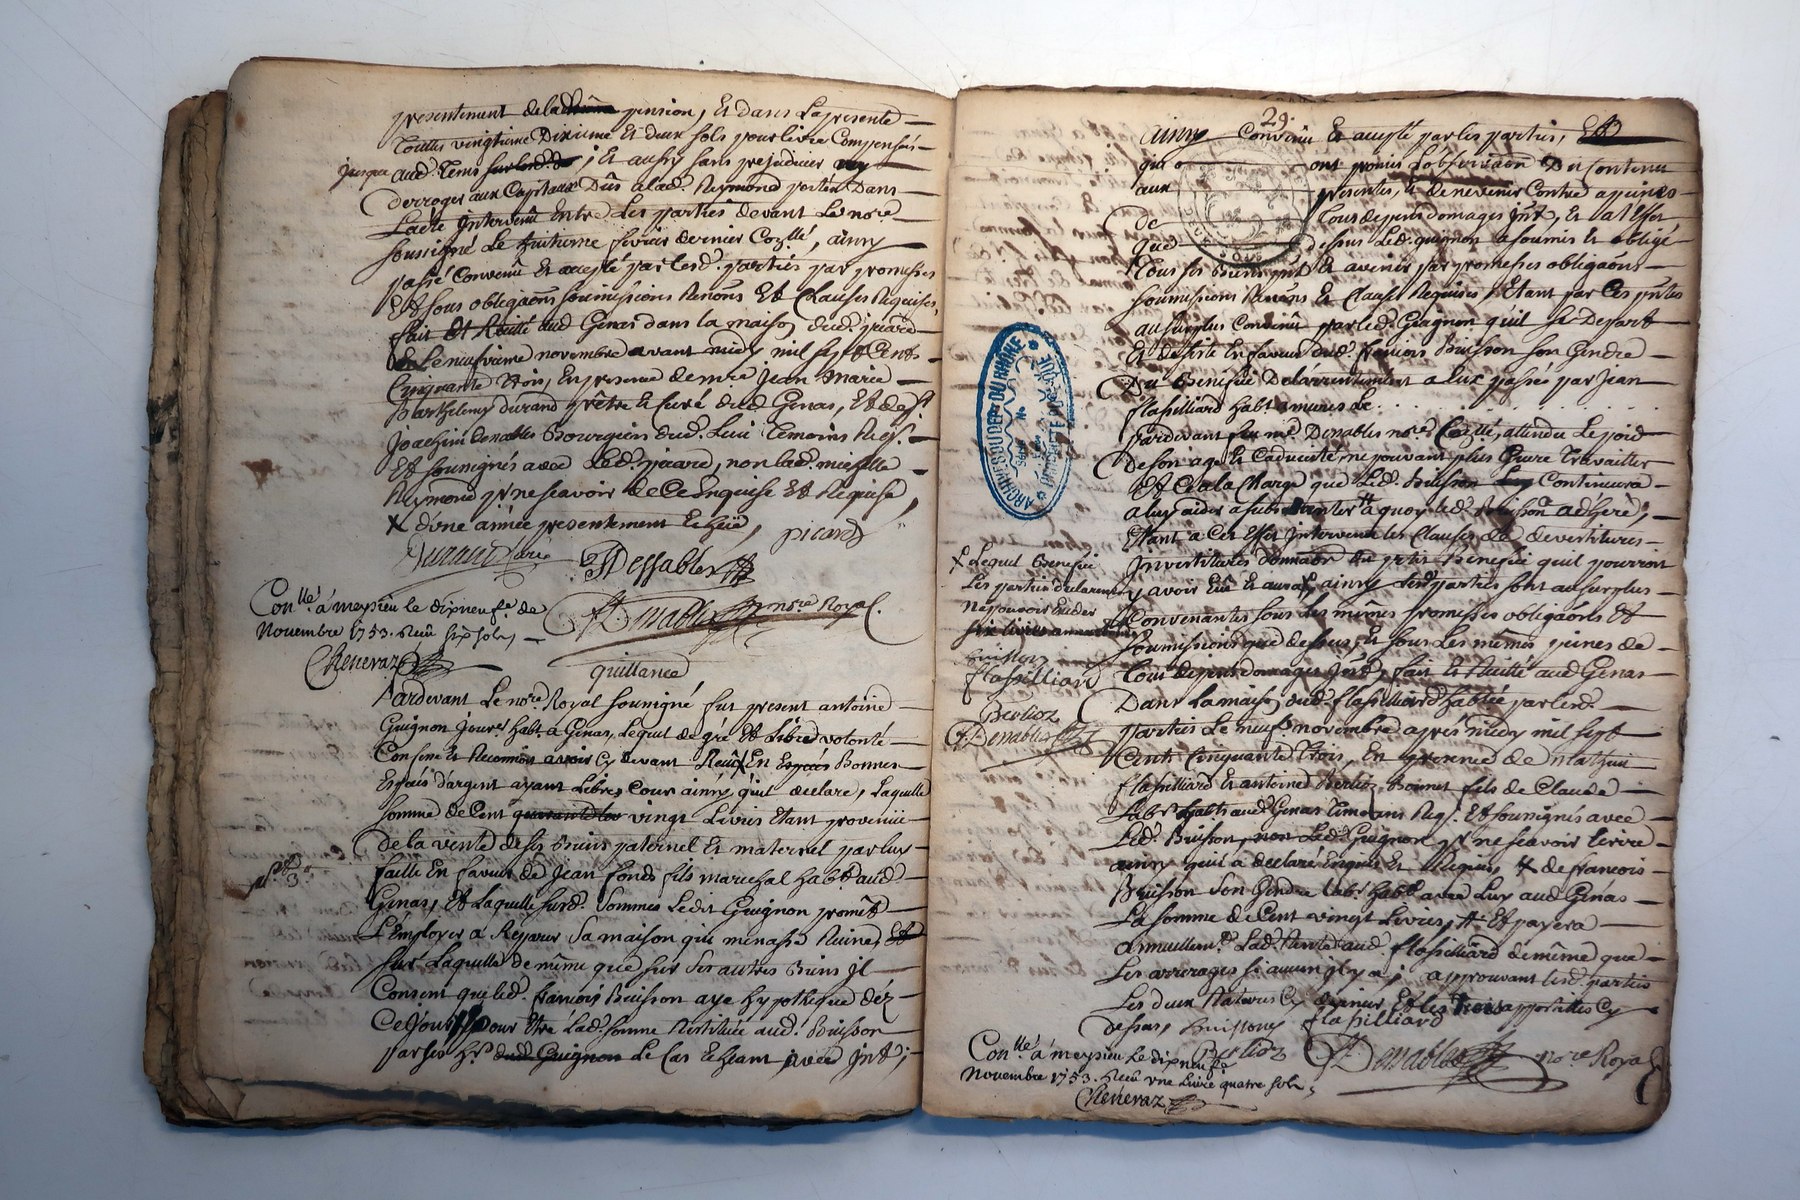 presentement de lad. pension, Et dans La presente
Toutes vingtieme Dixieme Et deux sols pour livre Compensés
jusqu'a aud. tems ; Et aussy sans prejudicier ny
derroger aux Capitaux Dûs a lad. Reymond portés Dans
L'acte Intervenû Entre Les parties devant Le nore
soussigné Le huitieme fevrier dernier Conllé, ainsy
passé Convenû Et accepté par lesd. parties par promesses
Et sous obligaõns soumissions Renons Et Clauses Requises,
fait Et Recitté aud Genas dans la maison dud. picard
Le neufvieme novembre avant midy mil sept Cents
Cinquante trois, En presence de mre Jean Marie
Barthelemy durand prêtre Et curé dud Genas, Et de sr
Joachim Denables Bourgeois dud. Lieu temoins Reqs.
Et soussignés avec Led. picard, non lad. mie
Reymond pr ne scavoir de Ce Enquise Et Requise,
X d'une année presentement Echeüe, picard
Durand Curé Dessables
Conllé a meysieu le dixneufe de
Novembre 1753. Receu six sols, nore Royal.
Reneraz
quittance
Pardevant Le nore Royal soussigné fut present antoine
Guignon jourer habt. a Genas, Lequel de gré Et Libre volonté
Confesse Et Reconnois avoir Cy devant Receu X En Espéces Bonnes
Espéces d'argent ayant Libres Cour ainsy qu'il declare, Laquelle
somme de Cent quarante vingt Livres Etant provenüe
de la vente de ses Biens paternel Et maternel par luy
faitte En faveur de Jean fonds fils marechal habt. aud
Genas, Et Laquelle surd. Somme Ledit Guignon promêt
L'Employer a Réparer Sa maison qui menasse Ruine, Et
sur Laquelle de même que sur Ses autres Biens Il
Consent que led. françois Buisson aye hypotheque déz
Ce Jour pour Être Lad. somme Restituée aud. Buisson
par ses hrs dud. Guignon Le Cas Echeant avec Int ;
29.
ainsy Convenû Et accepté par les parties,
qui ont promis L'observaõn Du Contenu
aux presentes, Et de ne venir Contre a peines
De tous depens domages Int, Et a L'effet
que dessus Led. guignon a soumis Et obligé
Tous ses Biens pnt Et avenir par promesses obligaõns
soumissions Renons Et Clauses Requises ; Etant par Ces pntes
au surplus Convenû par led. Guignon qu'il se Depart
Et desiste En faveur dud. françois Buisson Son Gendre
Du Benefice De L'arrentement a luy passée par Jean
flassilliard habt a mures Le . . . .
pardevant feu me. Denables nore Conllé, attendu Le poid
De son age Et Caducité ne pouvant plus Guere travailler
Et Cela a la Charge que Led. Buisson Continuera
a luy aider a subsanter a quoy led. Buisson adhere,
Etant a Cet Effet Intervenu les Clauses de devestitures
Investitures donnaõn du petit Benefice quil pourroit
y avoir Eû Et aura X, ainsy lesd. parties sont au surplus
Convenantes sous les mêmes promesses obligaõns Et
soumissions que dessus ; Et sous Les mêmes peines de
tous depens domages Int, fait Et Recitté aud Genas
Dans La maison dud. flassilliard habitée par lesd.
parties Le neuf novembre après midy mil sept
Cent Cinquante trois, En presence de mathieu
flassilliard Et antoine Berlioz Bonnet fils de Claude
Labr habts aud. Genas temoins Reqs. Et soussignés avec
Led. Buisson, non Led. Guignon pr ne scavoir Ecrire
ainsy quil a declaré Enquis Et Requis, X de francois
Buisson Son Gendre Labr. habt avec Luy aud Genas
La somme de Cent vingt Livres, # Et payera
annuellemt Lad. Rente aud. flassilliard de même que
Les arrerages si aucun Il y a, approuvant lesd. parties
Les deux Ratures Cy dernier Et les trois apostilles Cy
dessus, Buisson flassilliard
Berlioz nore Royal
Conllé a meysieu Le dixneufe
Novembre 1753. Receu une Livre quatre sols,
Reneraz
X Lequel Benefice
Les parties declarent
Ne pouvoir Exceder
six livres annuellemt
buisson
flassilliard
Berlioz
Denables
ARCHIVES DU DEPT DU RHÔNE